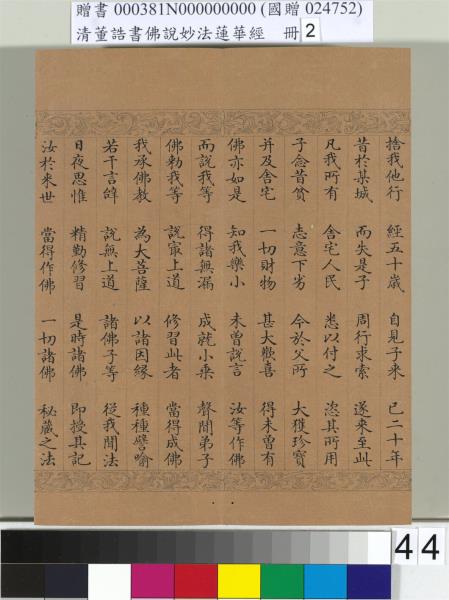 贈書 000381N000000000 (國贈 024752)
清董誥書佛說妙法蓮華經 冊 2
捨我他行 經五十歲 自見子來 已二十年
昔於某城 而失是子 周行求索 遂來至此
凡我所有 舍宅人民 悉以付之 恣其所用
子念昔貧 志意下劣 今於父所 大獲珍寶
并及舍宅 一切財物 甚大歡喜 得未曾有
佛亦如是 知我樂小 未曾說言 汝等作佛
而說我等 得諸無漏 成就小乘 聲聞弟子
佛勅我等 說寂上道 修習此者 當得成佛
我承佛教 為大菩薩 以諸因緣 種種譬喻
若干言辭 說無上道 諸佛子等 從我聞法
日夜思惟 精勤修習 是時諸佛 即授其記
汝於來世 當得作佛 一切諸佛 秘藏之法
44